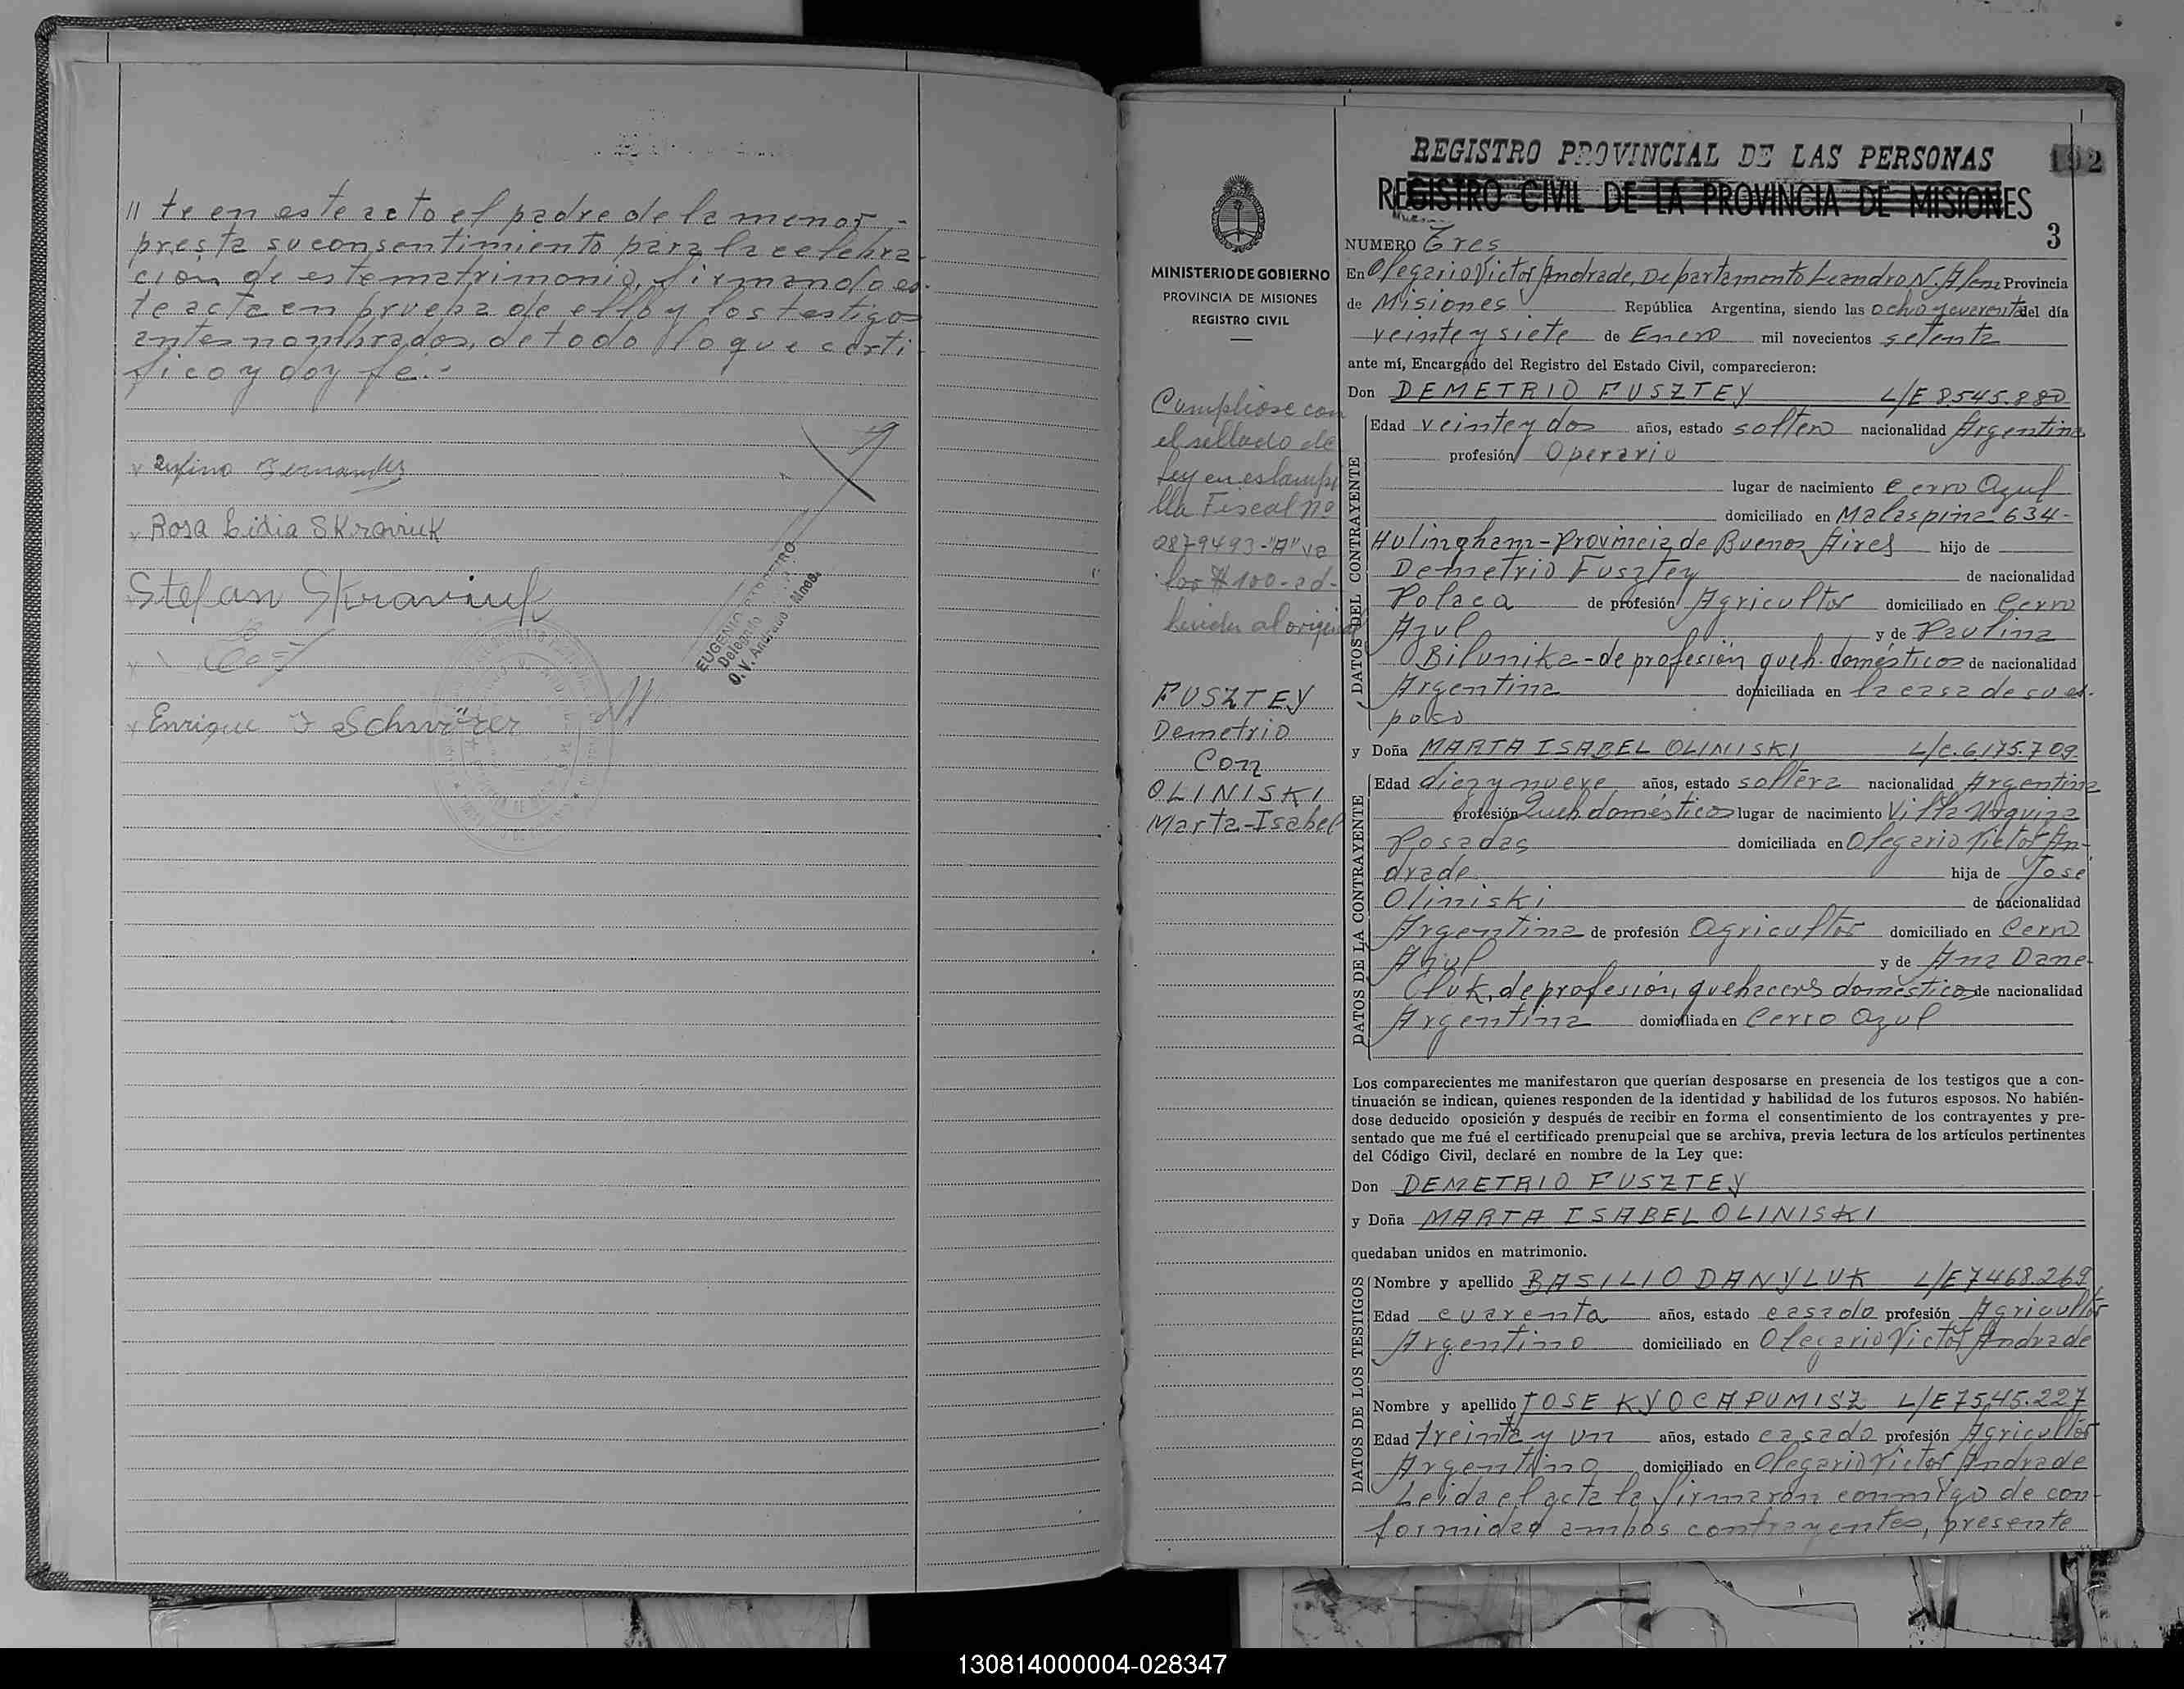 // te en este acto el padre de la menor -
presta su consentimiento para la celebra-
cion de este matrimonio, firmando es-
te acta en prueba de ello y los testigos
antes nombrados, de todo lo que certi-
fico y doy fe.-
Rufino Fernandez
Rosa Lidia SKraviuK
Stefan Skraviuk
Enrique F Schwörer
EUGENIO
Delegado
O. V. Andrade - Mnes.
MINISTERIO DE GOBIERNO
PROVINCIA DE MISIONES
REGISTRO CIVIL
Cumpliose con
el sellado de
ley en estampi
lla Fiscal Nº
0879493-"A" va
lor $ 100- ad-
herida al original
FUSZTEY
Demetrio
Con
OLINISKI
Marta-Isabel
REGISTRO PROVINCIAL DE LAS PERSONAS
192
REGISTRO CIVIL DE LA PROVINCIA DE MISIONES
3
NUMERO Tres
En Olegario Victor Andrade, Departamento Leandro N. Alem Provincia
de Misiones República Argentina, siendo las ocho y cuarenta del día
veinte y siete de Enero mil novecientos setenta
ante mí, Encargado del Registro del Estado Civil, comparecieron:
Don DEMETRIO FUSZTEY L/E 8.545.880
DATOS DEL CONTRAYENTE
Edad veinte y dos años, estado soltero nacionalidad Argentina
profesión Operario
lugar de nacimiento Cerro Azul
domiciliado en Malaspina 634-
Hulingham-Provincia de Buenos Aires hijo de
Demetrio Fusztey de nacionalidad
Polaca de profesión Agricultor domiciliado en Cerro
Azul y de Paulina
Bilunika-de profesión queh. domésticos de nacionalidad
Argentina domiciliada en la casa de su es-
poso
y Doña MARTA ISABEL OLINISKI L/C. 6.175.709
DATOS DE LA CONTRAYENTE
Edad diez y nueve años, estado soltera nacionalidad Argentina
profesión Queh domésticos lugar de nacimiento Villa Urquiza
Posadas domiciliada en Olegario Victor An-
drade hija de Jose
Oliniski de nacionalidad
Argentina de profesión Agricultor domiciliado en Cerro
Azul y de Ana Dane-
Cluk, de profesión, quehaceres domésticos de nacionalidad
Argentina domiciliada en Cerro Azul
Los comparecientes me manifestaron que querían desposarse en presencia de los testigos que a con-
tinuación se indican, quienes responden de la identidad y habilidad de los futuros esposos. No habién-
dose deducido oposición y después de recibir en forma el consentimiento de los contrayentes y pre-
sentado que me fué el certificado prenupcial que se archiva, previa lectura de los artículos pertinentes
del Código Civil, declaré en nombre de la Ley que:
Don DEMETRIO FUSZTEY
y Doña MARTA ISABEL OLINISKI
quedaban unidos en matrimonio.
DATOS DE LOS TESTIGOS
Nombre y apellido BASILIO DANYLUK L/E 7.468.269
Edad cuarenta años, estado casado profesión Agricultor
Argentino domiciliado en Olegario Victor Andrade
Nombre y apellido JOSE KYOCAPUMISZ L/E 7.545.227
Edad treinta y un años, estado casado profesión Agricultor
Argentino domiciliado en Olegario Victor Andrade
Leida el acta la firmaron conmigo de con-
formidad ambos contrayentes, presente
130814000004-028347